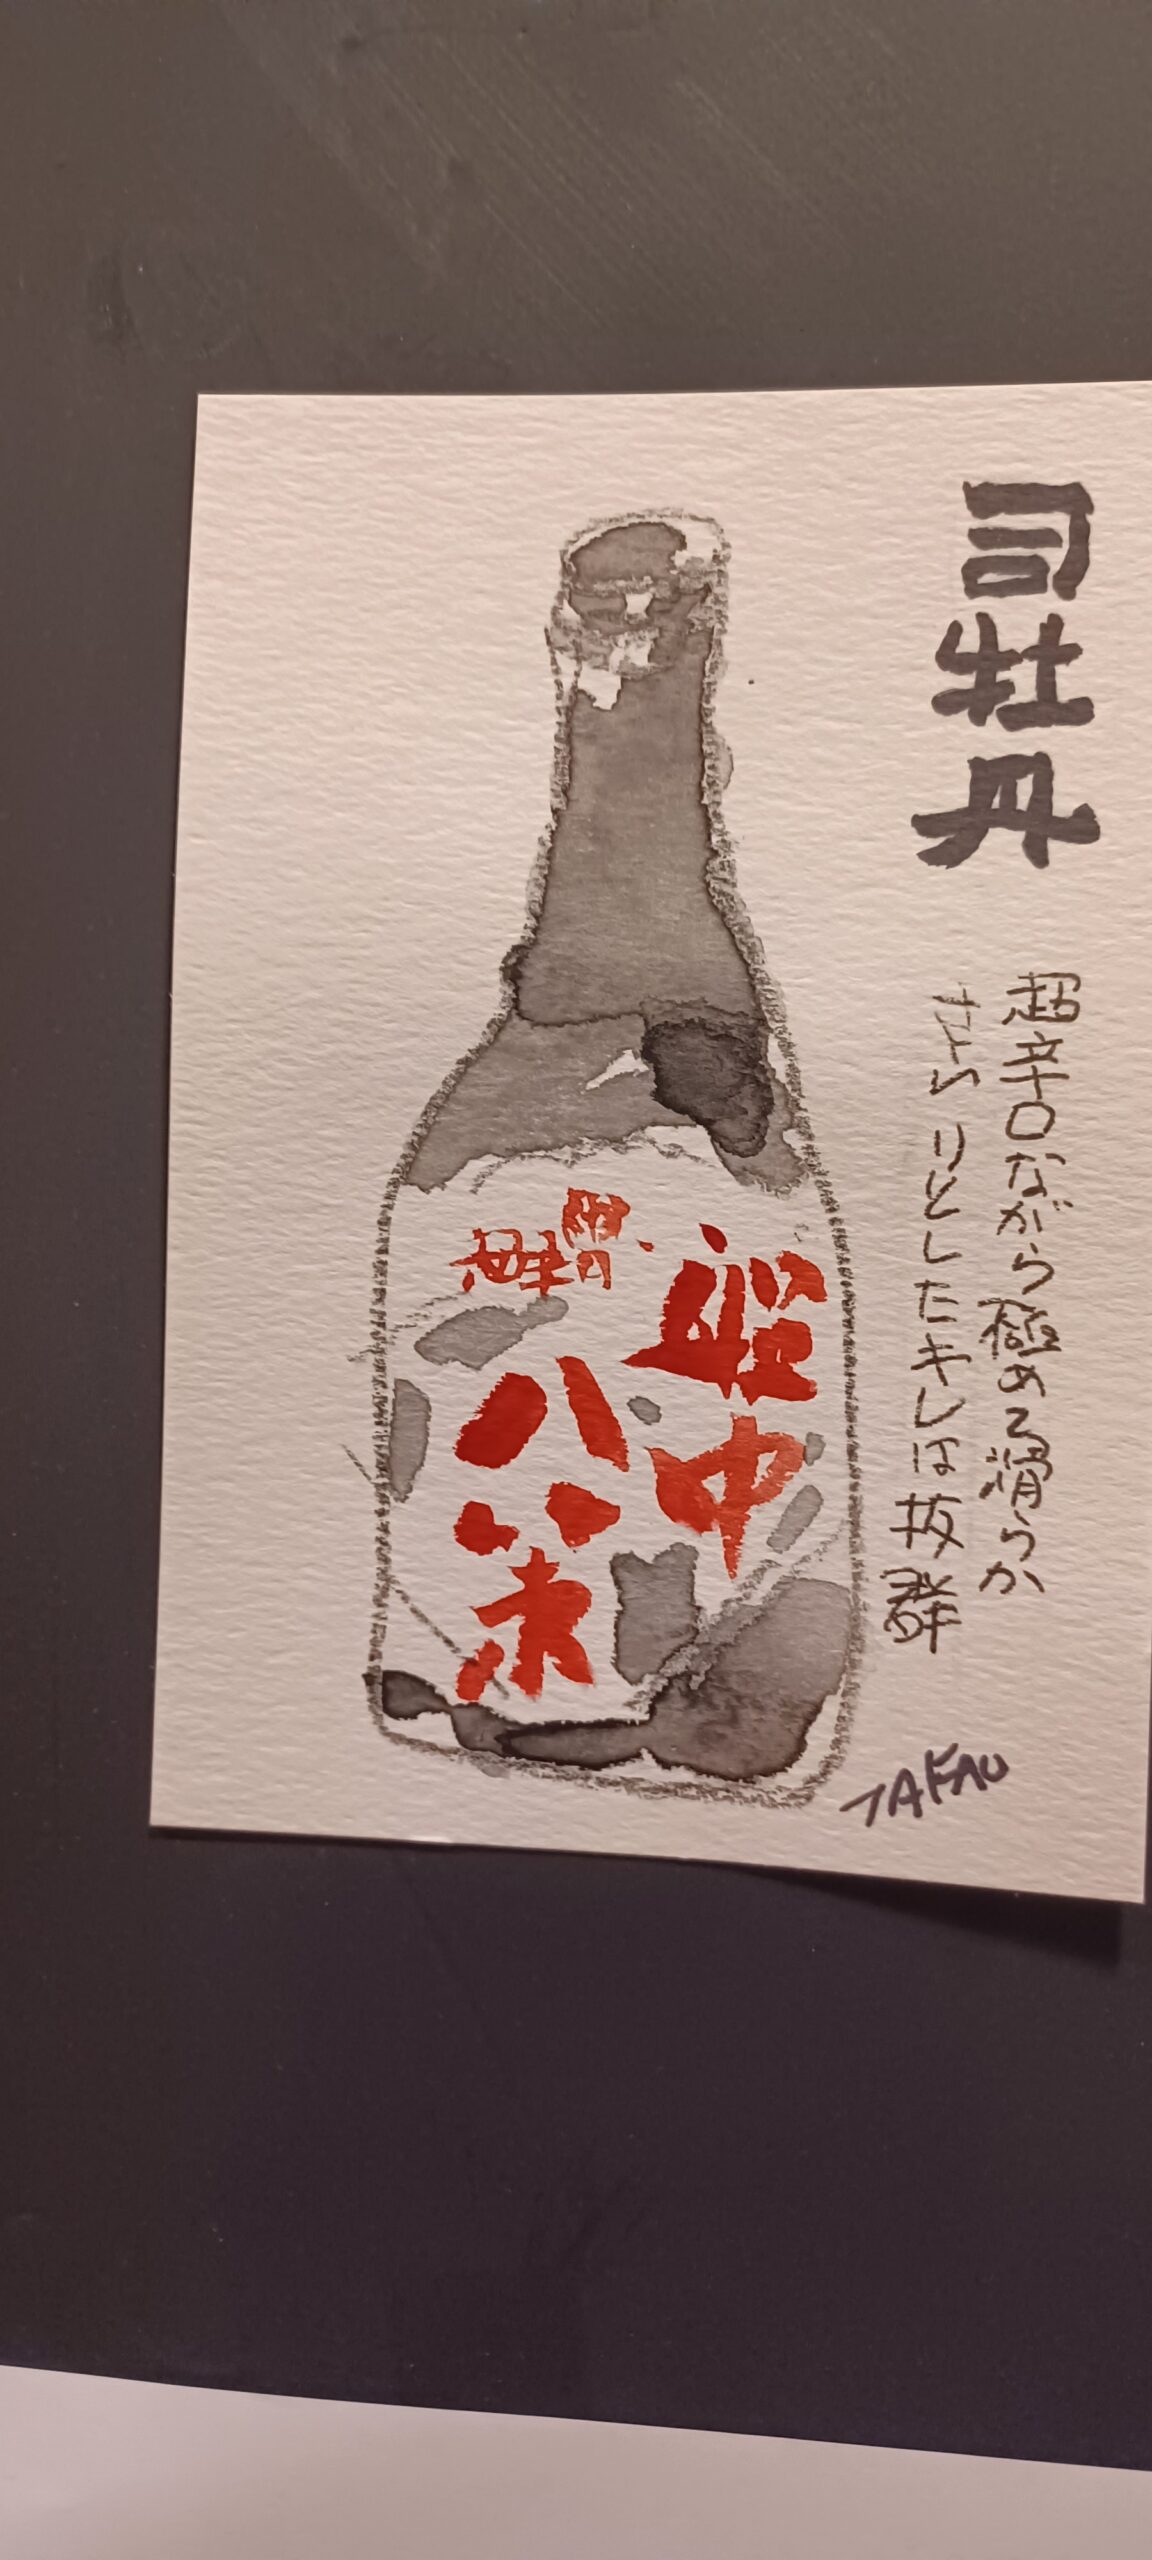 司牡丹
超辛口ながら極める滑らか
さらりとしたキレは抜群
船中
八策
TAKAO